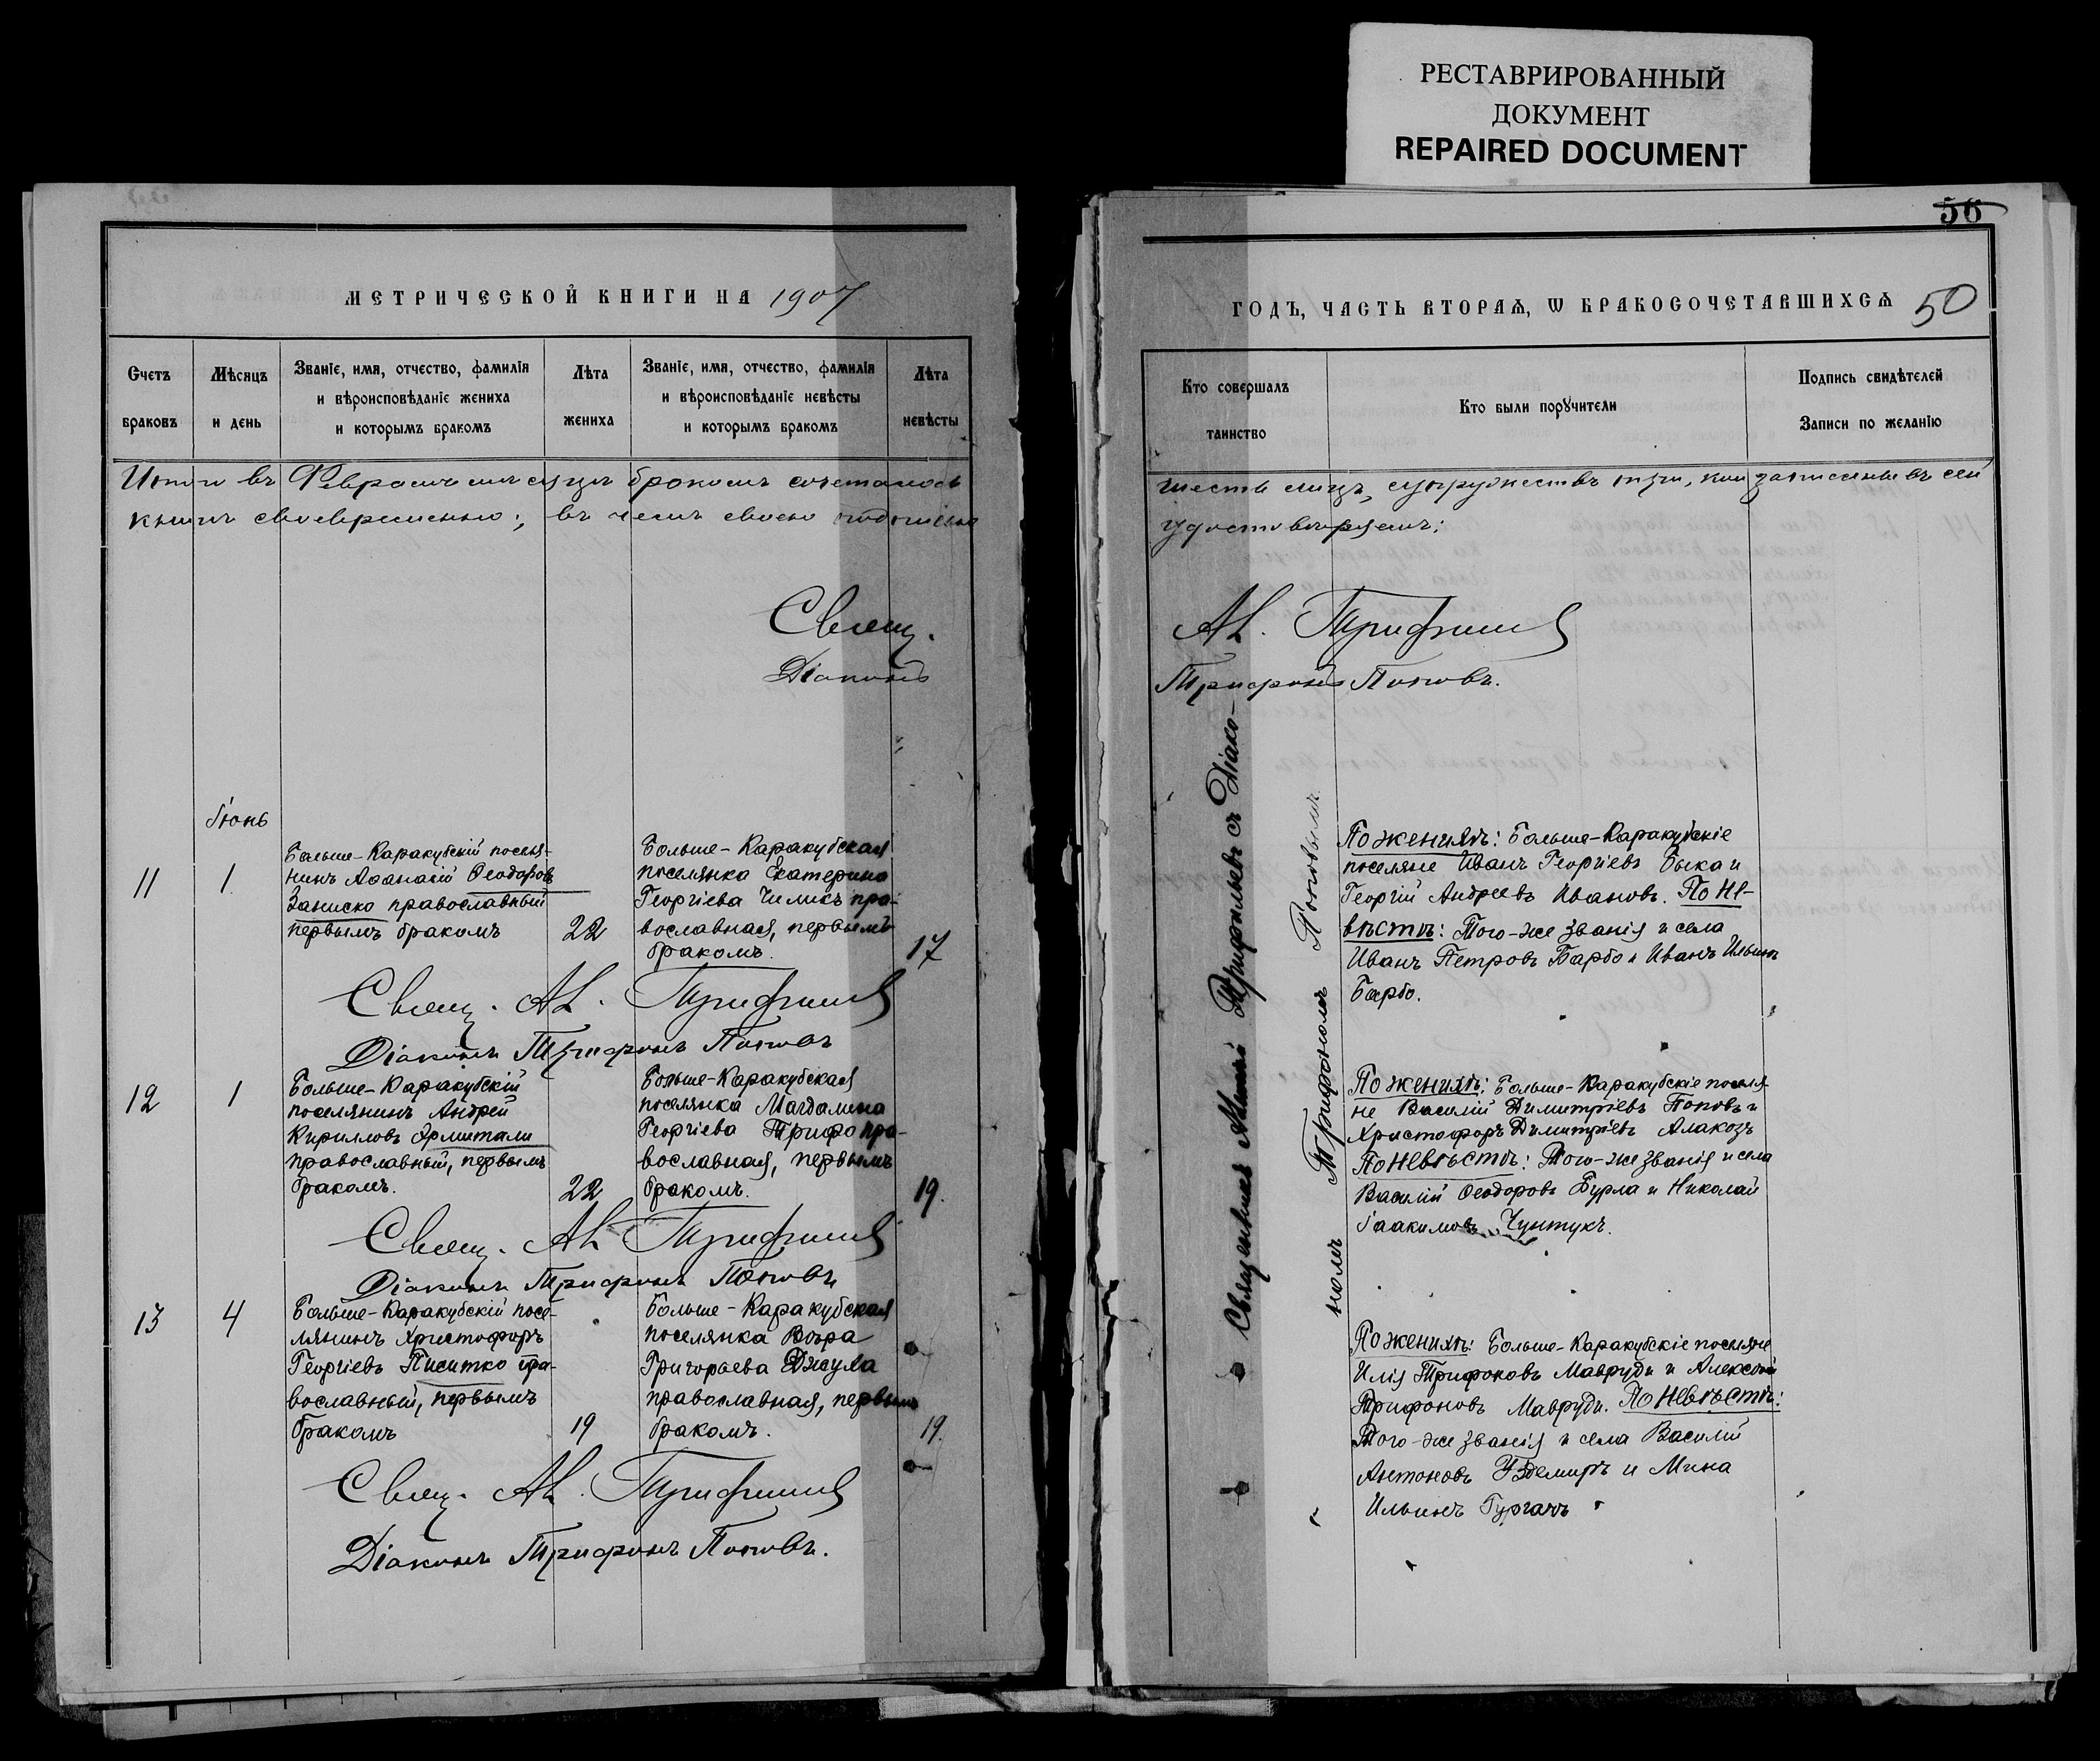 РЕСТАВРИРОВАННЫЙ
ДОКУМЕНТ
REPAIRED DOCUMENT
МЕТРИЧЕСКОЙ КНИГИ НА 1907
Счетъ
браковъ
Мѣсяцъ
и день
Званіе, имя, отчество, фамилія
и вѣроисповѣданіе жениха
и которымъ бракомъ
Лѣта
жениха
Званіе, имя, отчество, фамилія
и вѣроисповѣданіе невѣсты
и которымъ бракомъ
Лѣта
невѣсты
Итого въ Февралѣ мѣсяцѣ бракомъ сочеталось
книгѣ своевременно; въ чемъ своею подписью
Свящ.
Діаконъ
Іюнь
11
1
Больше-Каракубскій поселя-
нинъ Аѳанасій Ѳеодоровъ
Заниско православный
первымъ бракомъ
22
Больше-Каракубская
поселянка Екатерина
Георгіева Чиликъ пра-
вославная, первымъ
бракомъ.
17
Свящ. Ал. Трифильев
Діаконъ Трифонъ Поповъ
12
1
Больше-Каракубскій
поселянинъ Андрей
Кирилловъ
православный, первымъ
бракомъ.
22
Больше-Каракубская
поселянка Магдалина
Георгіева Трифо пра-
вославная, первымъ
бракомъ.
19.
Свящ. Ал. Трифильев
Діаконъ Трифонъ Поповъ
13
4
Больше-Каракубскій посе-
лянинъ Христофоръ
Георгіевъ Писитко пра-
вославный, первымъ
бракомъ
19
Больше-Каракубская
поселянка Вѣра
Григорьева Джула
православная, первымъ
бракомъ.
19.
Свящ. Ал. Трифильев
Діаконъ Трифонъ Поповъ.
56
ГОДЪ, ЧАСТЬ ВТОРАѦ, Ѡ БРАКОСОЧЕТАВШИХСѦ 50
Кто совершалъ
таинство
Кто были порꙋчители
Подпись свидѣтелей
Записи по желанію
шесть лицъ, супружествъ три, кои записаны въ сей
удостовѣряемъ:
Ал. Трифильев
Трифонъ Поповъ.
Священникъ Алексій Трифильевъ съ Діако-
номъ Трифономъ Поповымъ
По женихѣ: Больше-Каракубскіе
поселяне Иванъ Георгіевъ Быка и
Георгій Андреевъ Ивановъ. По не-
вѣстѣ: Того-же званія и села
Иванъ Петровъ Барбо и Иванъ Ильинъ
Барбо.
По женихѣ: Больше-Каракубскіе поселя-
не Василій Димитріевъ Поповъ и
Христофоръ Димитріевъ Алакозъ
По невѣстѣ: Того-же званія и села
Василій Ѳеодоровъ Бурла и Николай
Іоакимовъ Чунтукъ.
По женихѣ: Больше-Каракубскіе поселяне
Илія Трифоновъ Мавруди и Алексѣй
Трифоновъ Мавруди. По невѣстѣ:
Того-же званія и села Василій
Антоновъ Уздемиръ и Мина
Ильинъ Гургачъ